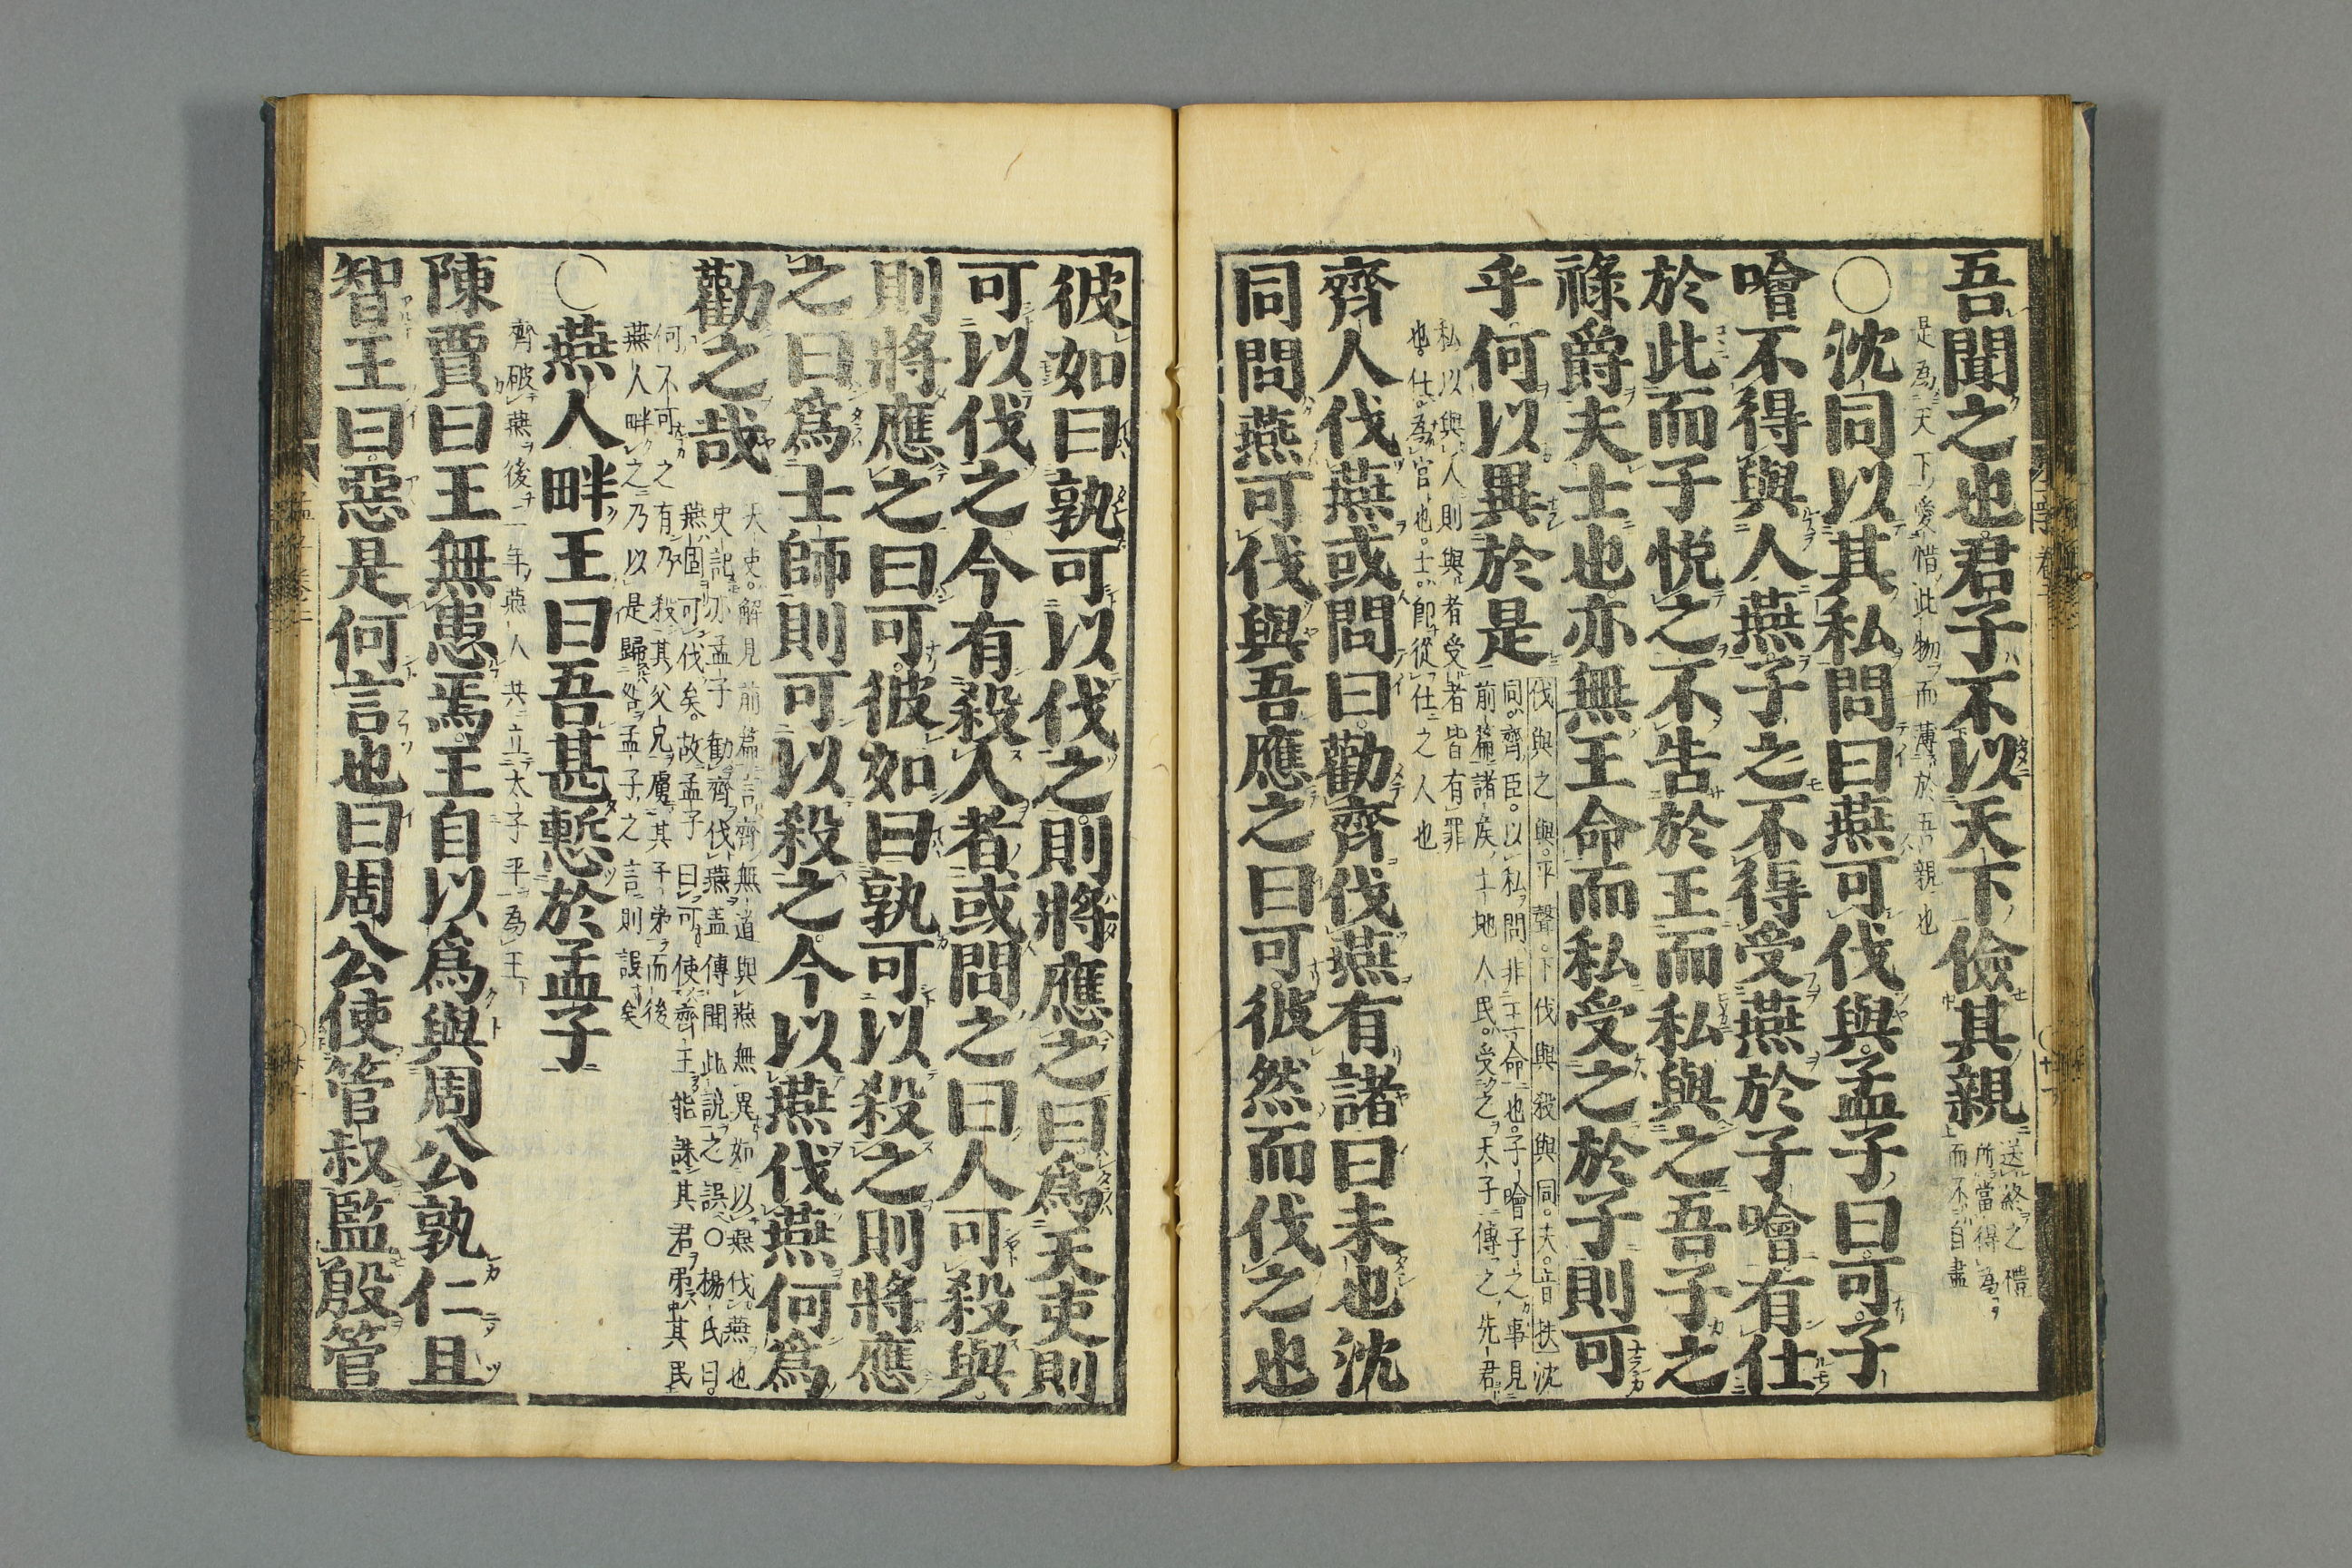 吾聞之也君子不以天下儉其親送終之禮所當得爲而不自盡
是爲天下愛惜此物而薄於吾親也
○沈同以其私問曰燕可伐與孟子曰可子
噲不得與人燕子之不得受燕於子噲有仕
於此而子悅之不告於王而私與之吾子之
祿爵夫士也亦無王命而私受之於子則可
乎何以異於是伐與之與平聲下伐與殺與同夫音扶沈同齊臣以私問非王命也子噲子之事見前篇諸侯土地人民受之天子傳之先君
私以與人則與者受者皆有罪也仕爲官也士卽從仕之人也
齊人伐燕或問曰勸齊伐燕有諸曰未也沈
同問燕可伐與吾應之曰可彼然而伐之也
彼如曰孰可以伐之則將應之曰爲天吏則
可以伐之今有殺人者或問之曰人可殺與
則將應之曰可彼如曰孰可以殺之則將應
之曰爲士師則可以殺之今以燕伐燕何爲
勸之哉天吏解見前篇言齊無道與燕無異如以燕伐燕也史記亦孟子勸齊伐燕蓋傳聞此說之誤○楊氏曰燕固可伐矣故孟子曰可使齊王能誅其君弔其民
何不可之有乃殺其父兄虜其子弟而後燕人畔之乃以是歸咎孟子之言則誤矣
○燕人畔王曰吾甚慙於孟子
齊破燕後二年燕人共立太子平爲王
陳賈曰王無患焉王自以爲與周公孰仁且
智王曰惡是何言也曰周公使管叔監殷管